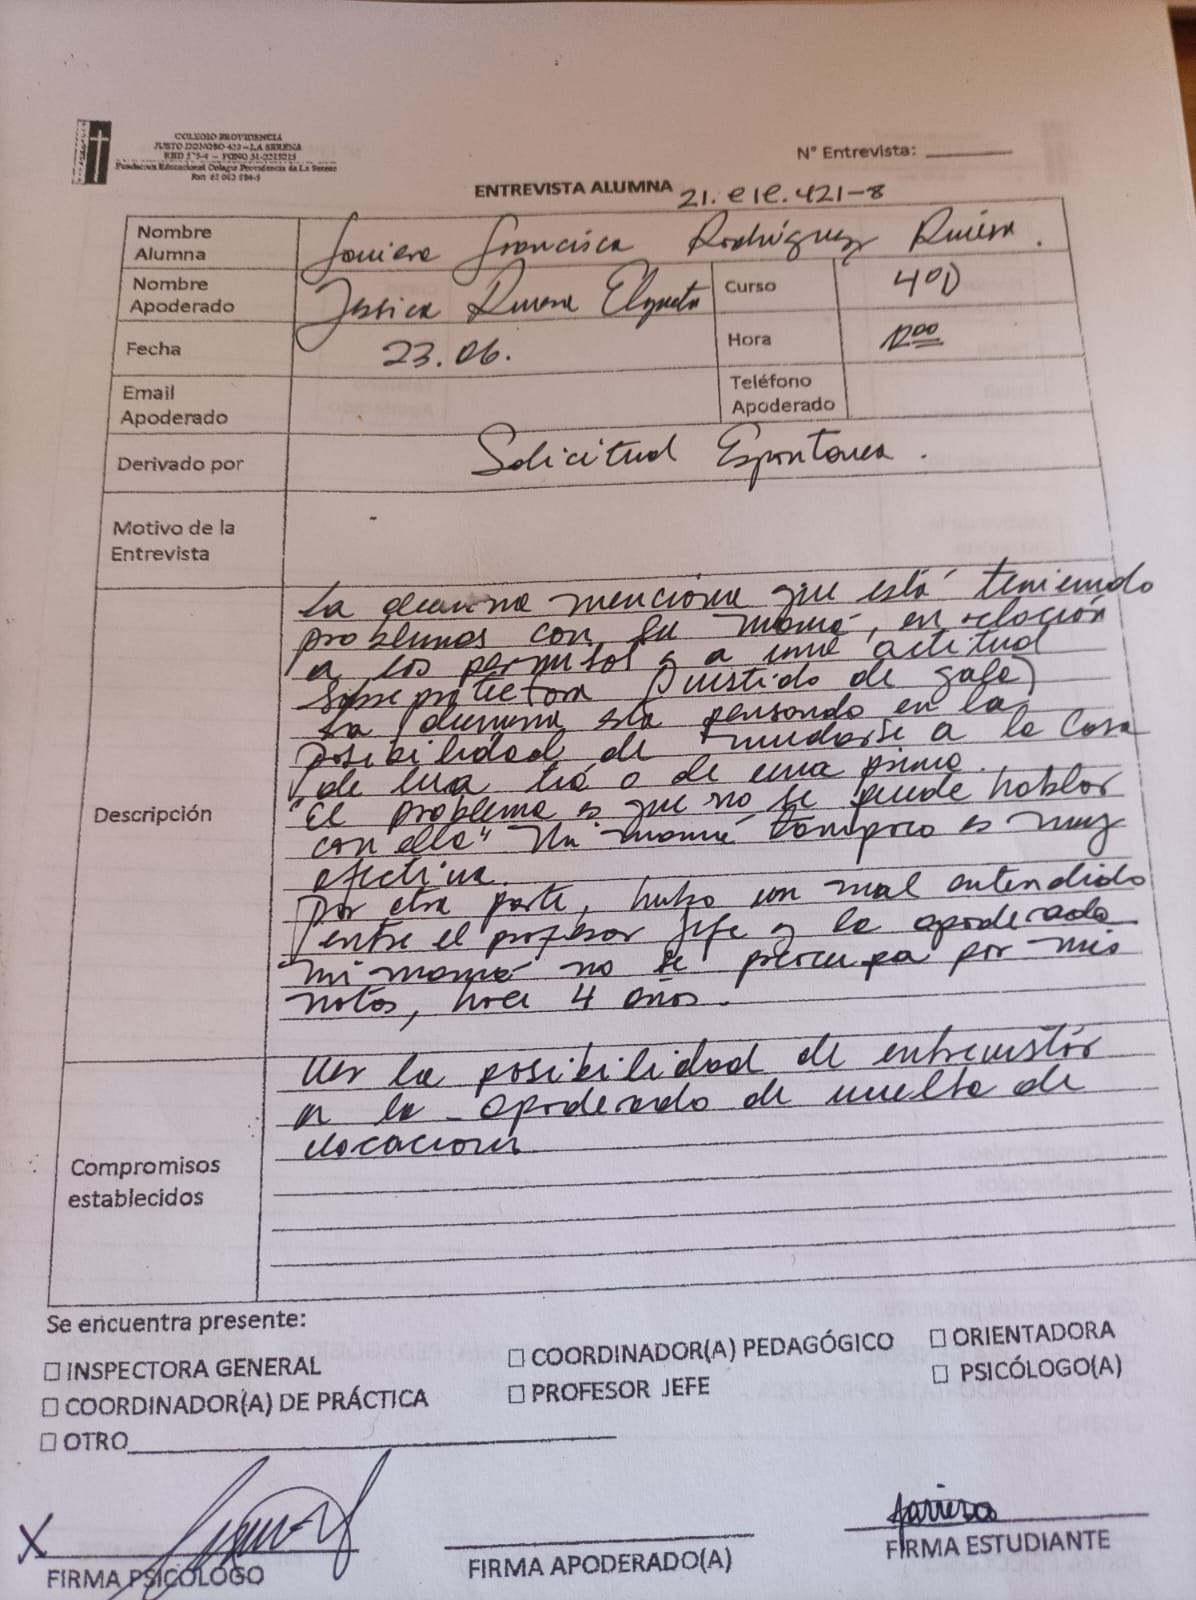 COLEGIO PROVIDENCIA
JUSTO DONOSO 420 – LA SERENA
Fundacion Educacional Colegio Providencia de La Serena
N° Entrevista: ________
ENTREVISTA ALUMNA 21. 421-8
Nombre Alumna Francisca Rodríguez
Nombre Apoderado Jessica Curso 4°D
Fecha 23.06. Hora 12:00
Email Apoderado Teléfono Apoderado
Derivado por Solicitud Espontanea.
Motivo de la Entrevista
Descripción
La alumna menciona que está teniendo
problemas con su mamá, en relación
a los permisos y a una actitud
sobreprotectora (vestido de gala)
La alumna esta pensando en la
posibilidad de mudarse a la casa
de una tía o de una prima.
"El problema es que no se puede hablar
con ella" Mi mamá tampoco es muy
afectiva.
Por otra parte, hubo un mal entendido
entre el profesor jefe y la apoderada
"mi mamá no se preocupa por mis
notas, hace 4 años.
Compromisos establecidos
Ver la posibilidad de entrevistar
a la apoderada de vuelta de
vacaciones
Se encuentra presente:
☐ INSPECTORA GENERAL ☐ COORDINADOR(A) PEDAGÓGICO ☐ ORIENTADORA
☐ COORDINADOR(A) DE PRÁCTICA ☐ PROFESOR JEFE ☐ PSICÓLOGO(A)
☐ OTRO
X
FIRMA PSICÓLOGO FIRMA APODERADO(A) FIRMA ESTUDIANTE